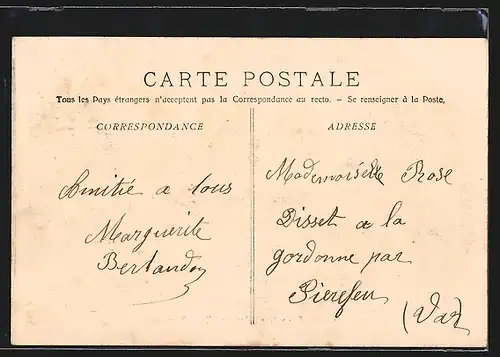 CARTE POSTALE
Tous les Pays étrangers n'acceptent pas la Correspondance au recto. - Se renseigner à la Poste.
CORRESPONDANCE
Amitié a tous
Marguerite
Bertaudon
ADRESSE
Mademoiselle Rose
Disset a la
gordonne par
Pierefeu
(Var)